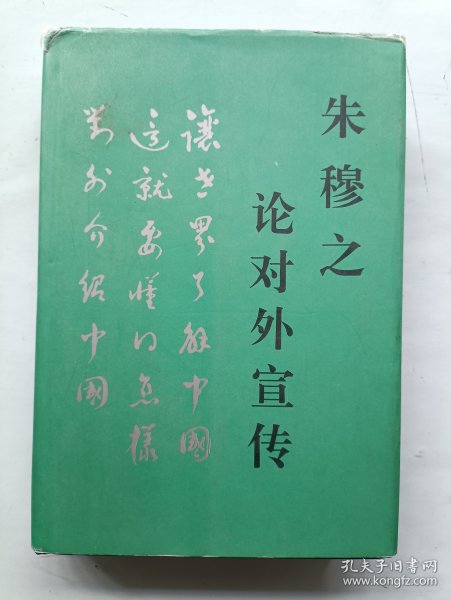 朱穆之
论对外宣传
讓世界了解中國
這就要懂得怎樣
對外介紹中國
孔夫子旧书网
www.kongfz.com